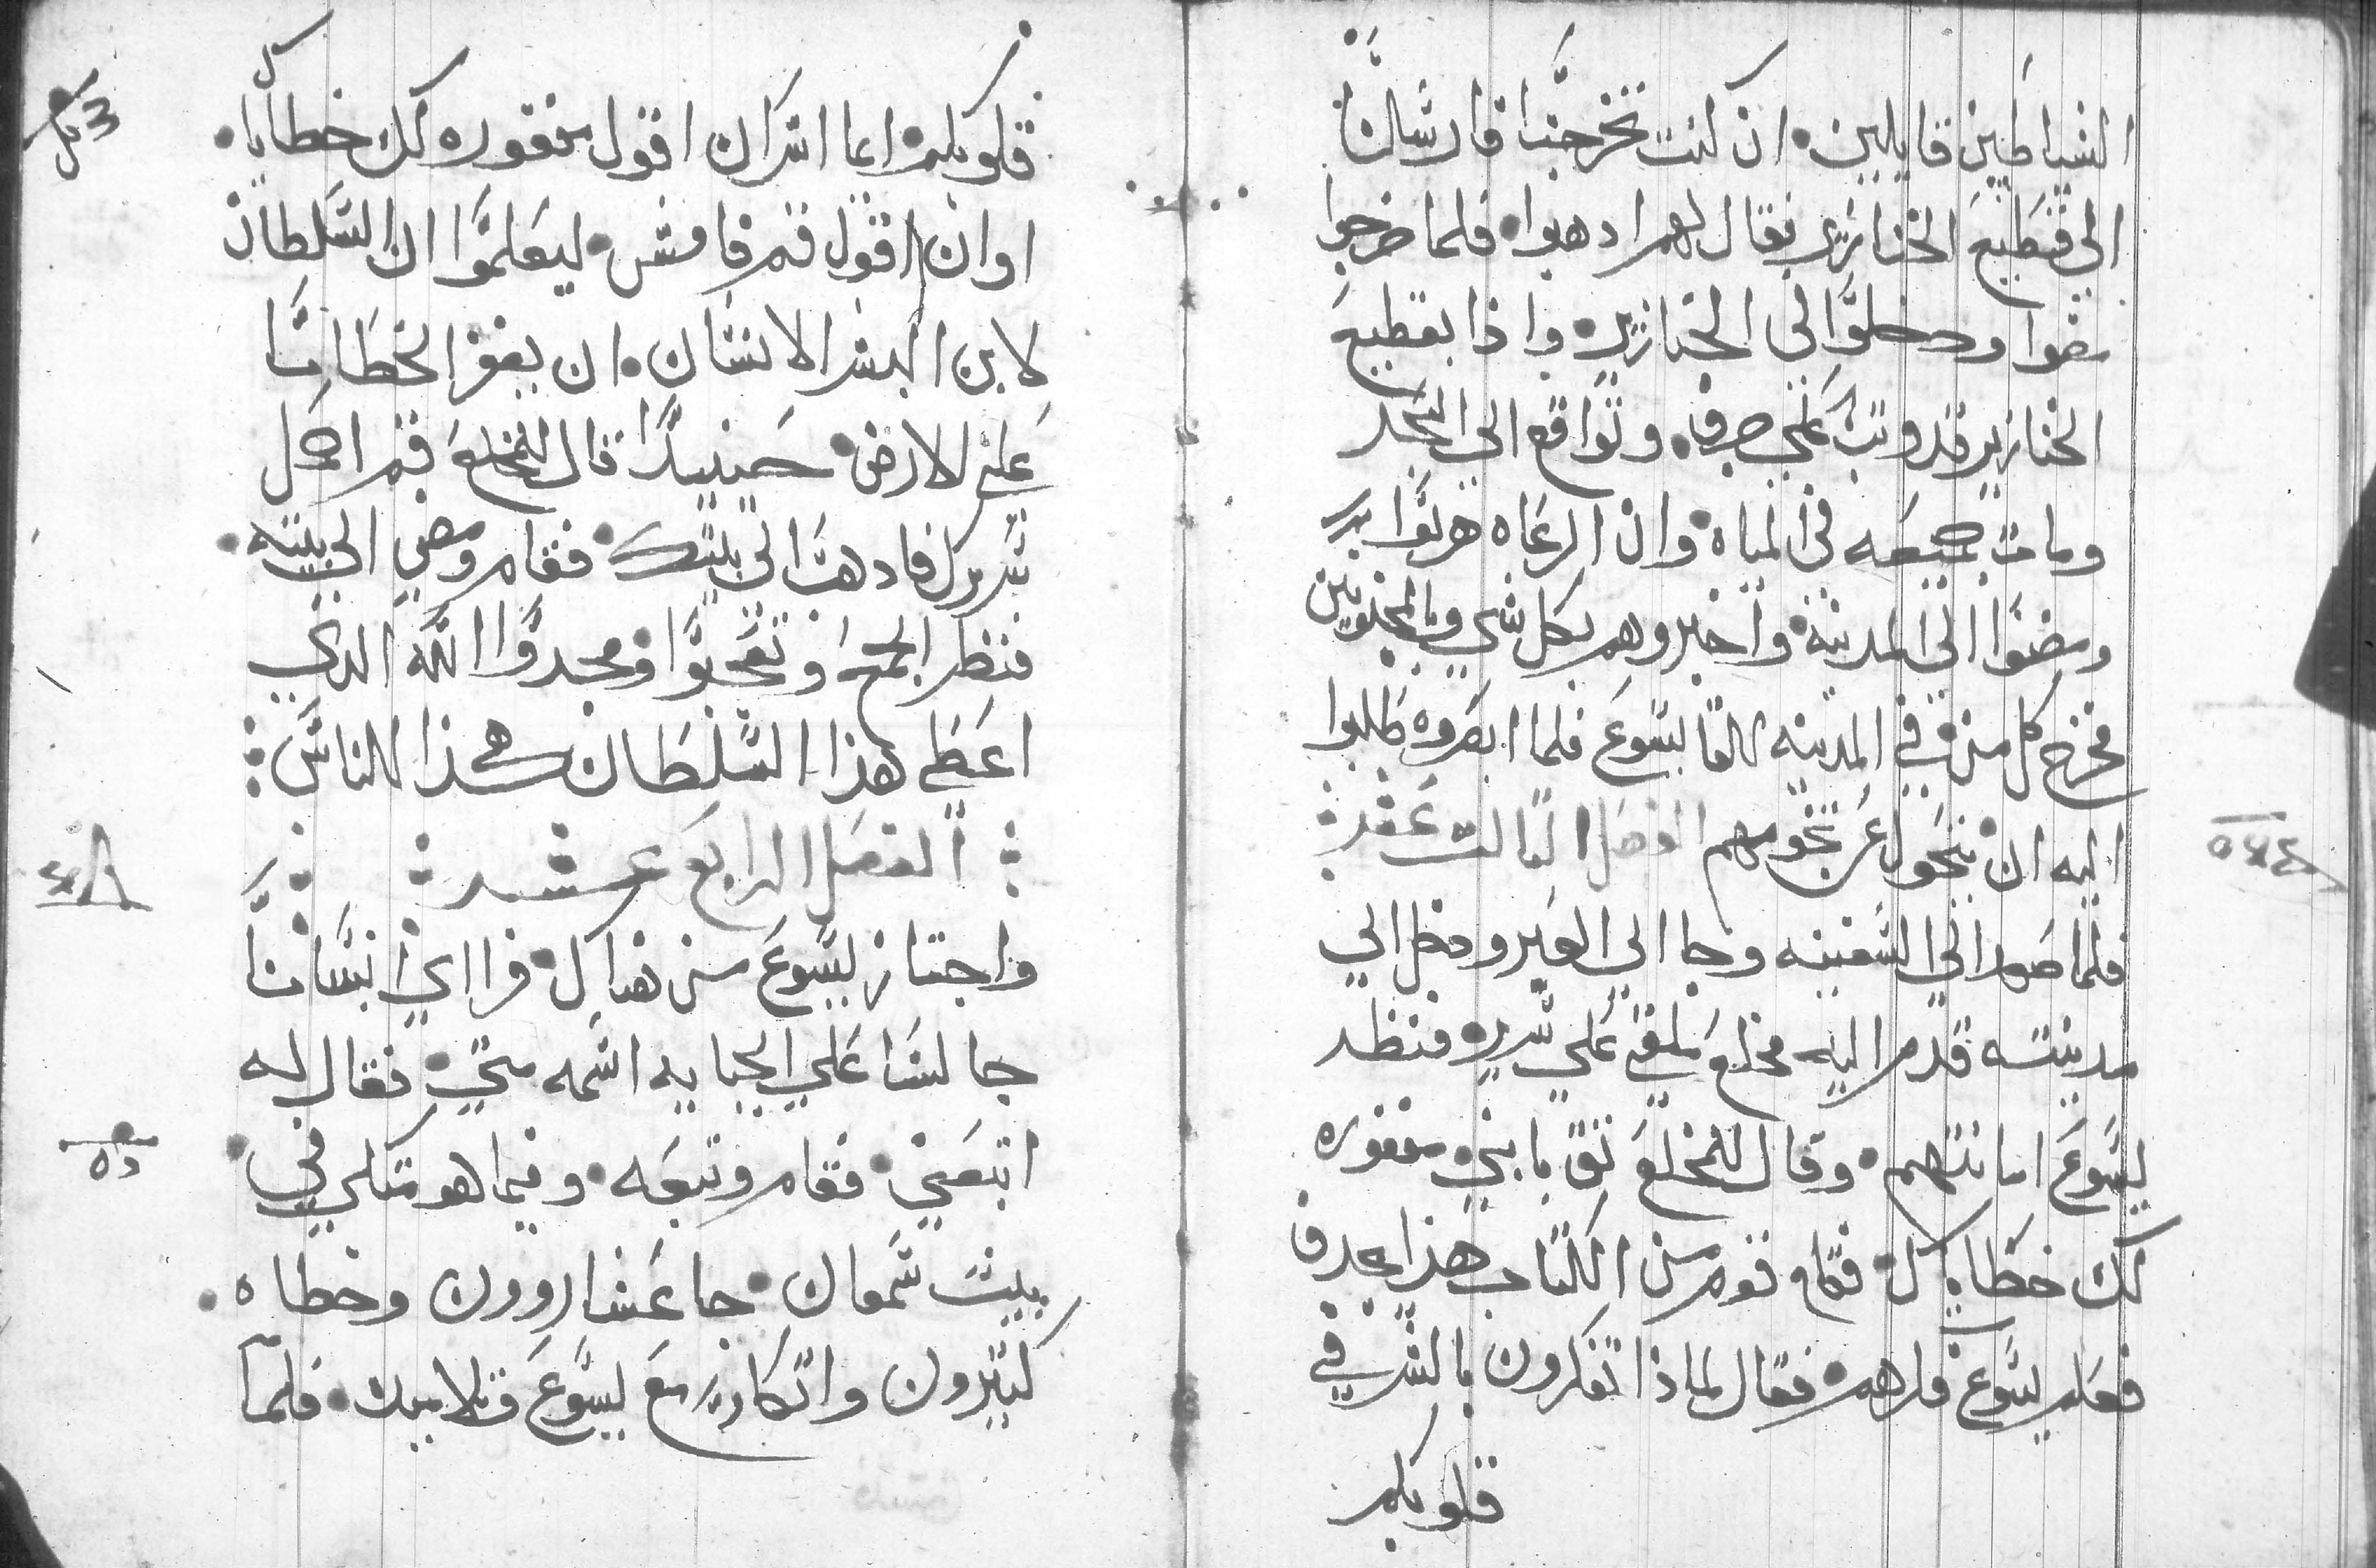 الشياطين قايلين. ان كنت تخرجنا فارسلنا
الي قطيع الخنازير فقال لهم ادهبوا. فلما خرجوا
مضوا ودخلوا الى الخنازير. واذا بقطيع
الخنازير قد وتب علي جرف. وتواقع الي البحر
ومات جميعه في المياه. وان الرعاه هربوا
ومضوا الي المدينه. واخبروهم بكل شي وبالمجنونين
فخرج كل من في المدينه للقا يسوع فلما ابصروه طلبوا
اليه ان يتحول عن تخومهم الفصل التالت عشر:
فلما صعد الي السفينه وجا الي العبر ودخل الي
مدينته قدم اليه مخلع ملقي علي سرير. فنظر
يسوع امانتهم. وقال للمخلع تق يا بني. مغفوره
لك خطاياك. فقام قوم من الكتاب هذا يجدف
فعلم يسوع فكرهم. فقال لماذا تفكرون بالشر في
قلوبكم
قلوبكم. ايما ايسر ان اقول مغفوره لك خطاياك.
او ان اقول قم فامش. ليعلموا ان السلطان
لابن البشر الانسان. ان يغفر الخطايا
علي الارض. حينيدا قال للمخلع قم احمل
سريرك فادهب الي بيتك. فقام ومضي الي بيته.
فنظر الجمع وتعجبوا ومجدوا الله الدي
اعطي هذا السلطان هكذا للناس:
: الفصل الرابع عشر :
واجتاز يسوع من هناك. فراي انسانا
جالسا علي الجبايه اسمه متي. فقال له
اتبعني. فقام وتبعه. وفيما هو متكي في
بيت سمعان. جا عشارورن وخطاه.
كتيرون واتكا مع يسوع وتلاميده. فلما